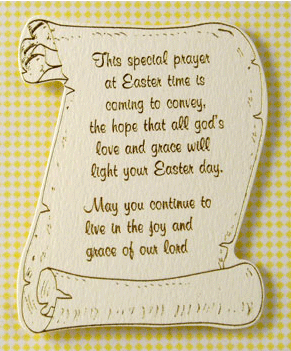 This special prayer
at Easter time is
coming to convey,
the hope that all god's
love and grace will
light your Easter day.
May you continue to
live in the joy and
grace of our lord